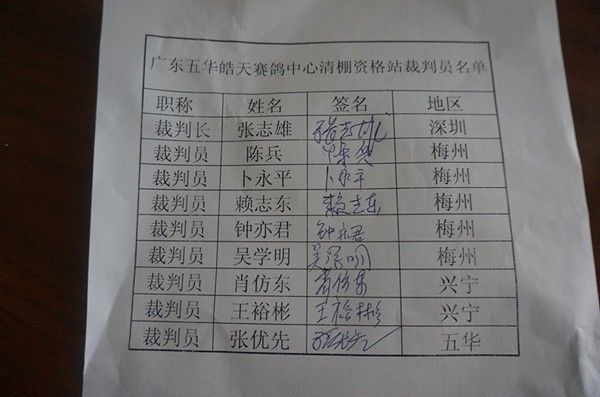 广东五华皓天赛鸽中心清棚资格站裁判员名单
职称 姓名 签名 地区
裁判长 张志雄 张志雄 深圳
裁判员 陈兵 陈兵 梅州
裁判员 卜永平 卜永平 梅州
裁判员 赖志东 赖志东 梅州
裁判员 钟亦君 钟亦君 梅州
裁判员 吴学明 吴学明 梅州
裁判员 肖仿东 肖仿东 兴宁
裁判员 王裕彬 王裕彬 兴宁
裁判员 张优先 张优先 五华